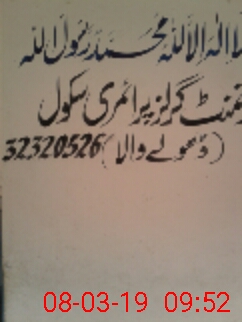 لا الہ الا اللہ محمد رسول اللہ
نمنٹ گرلز پرائمری سکول
(دھولے والا) 32320526
08-03-19 09:52